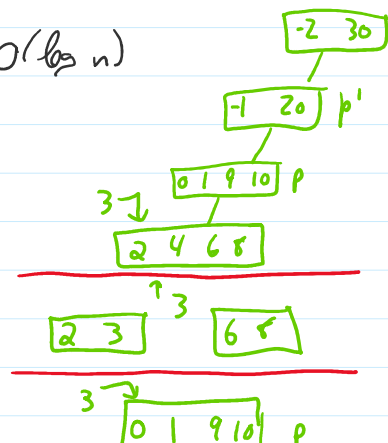 -2 30
O(log n)
-1 20 p'
0 1 9 10 p
3
2 4 6 8
3
2 3 6 8
3
0 1 9 10 p